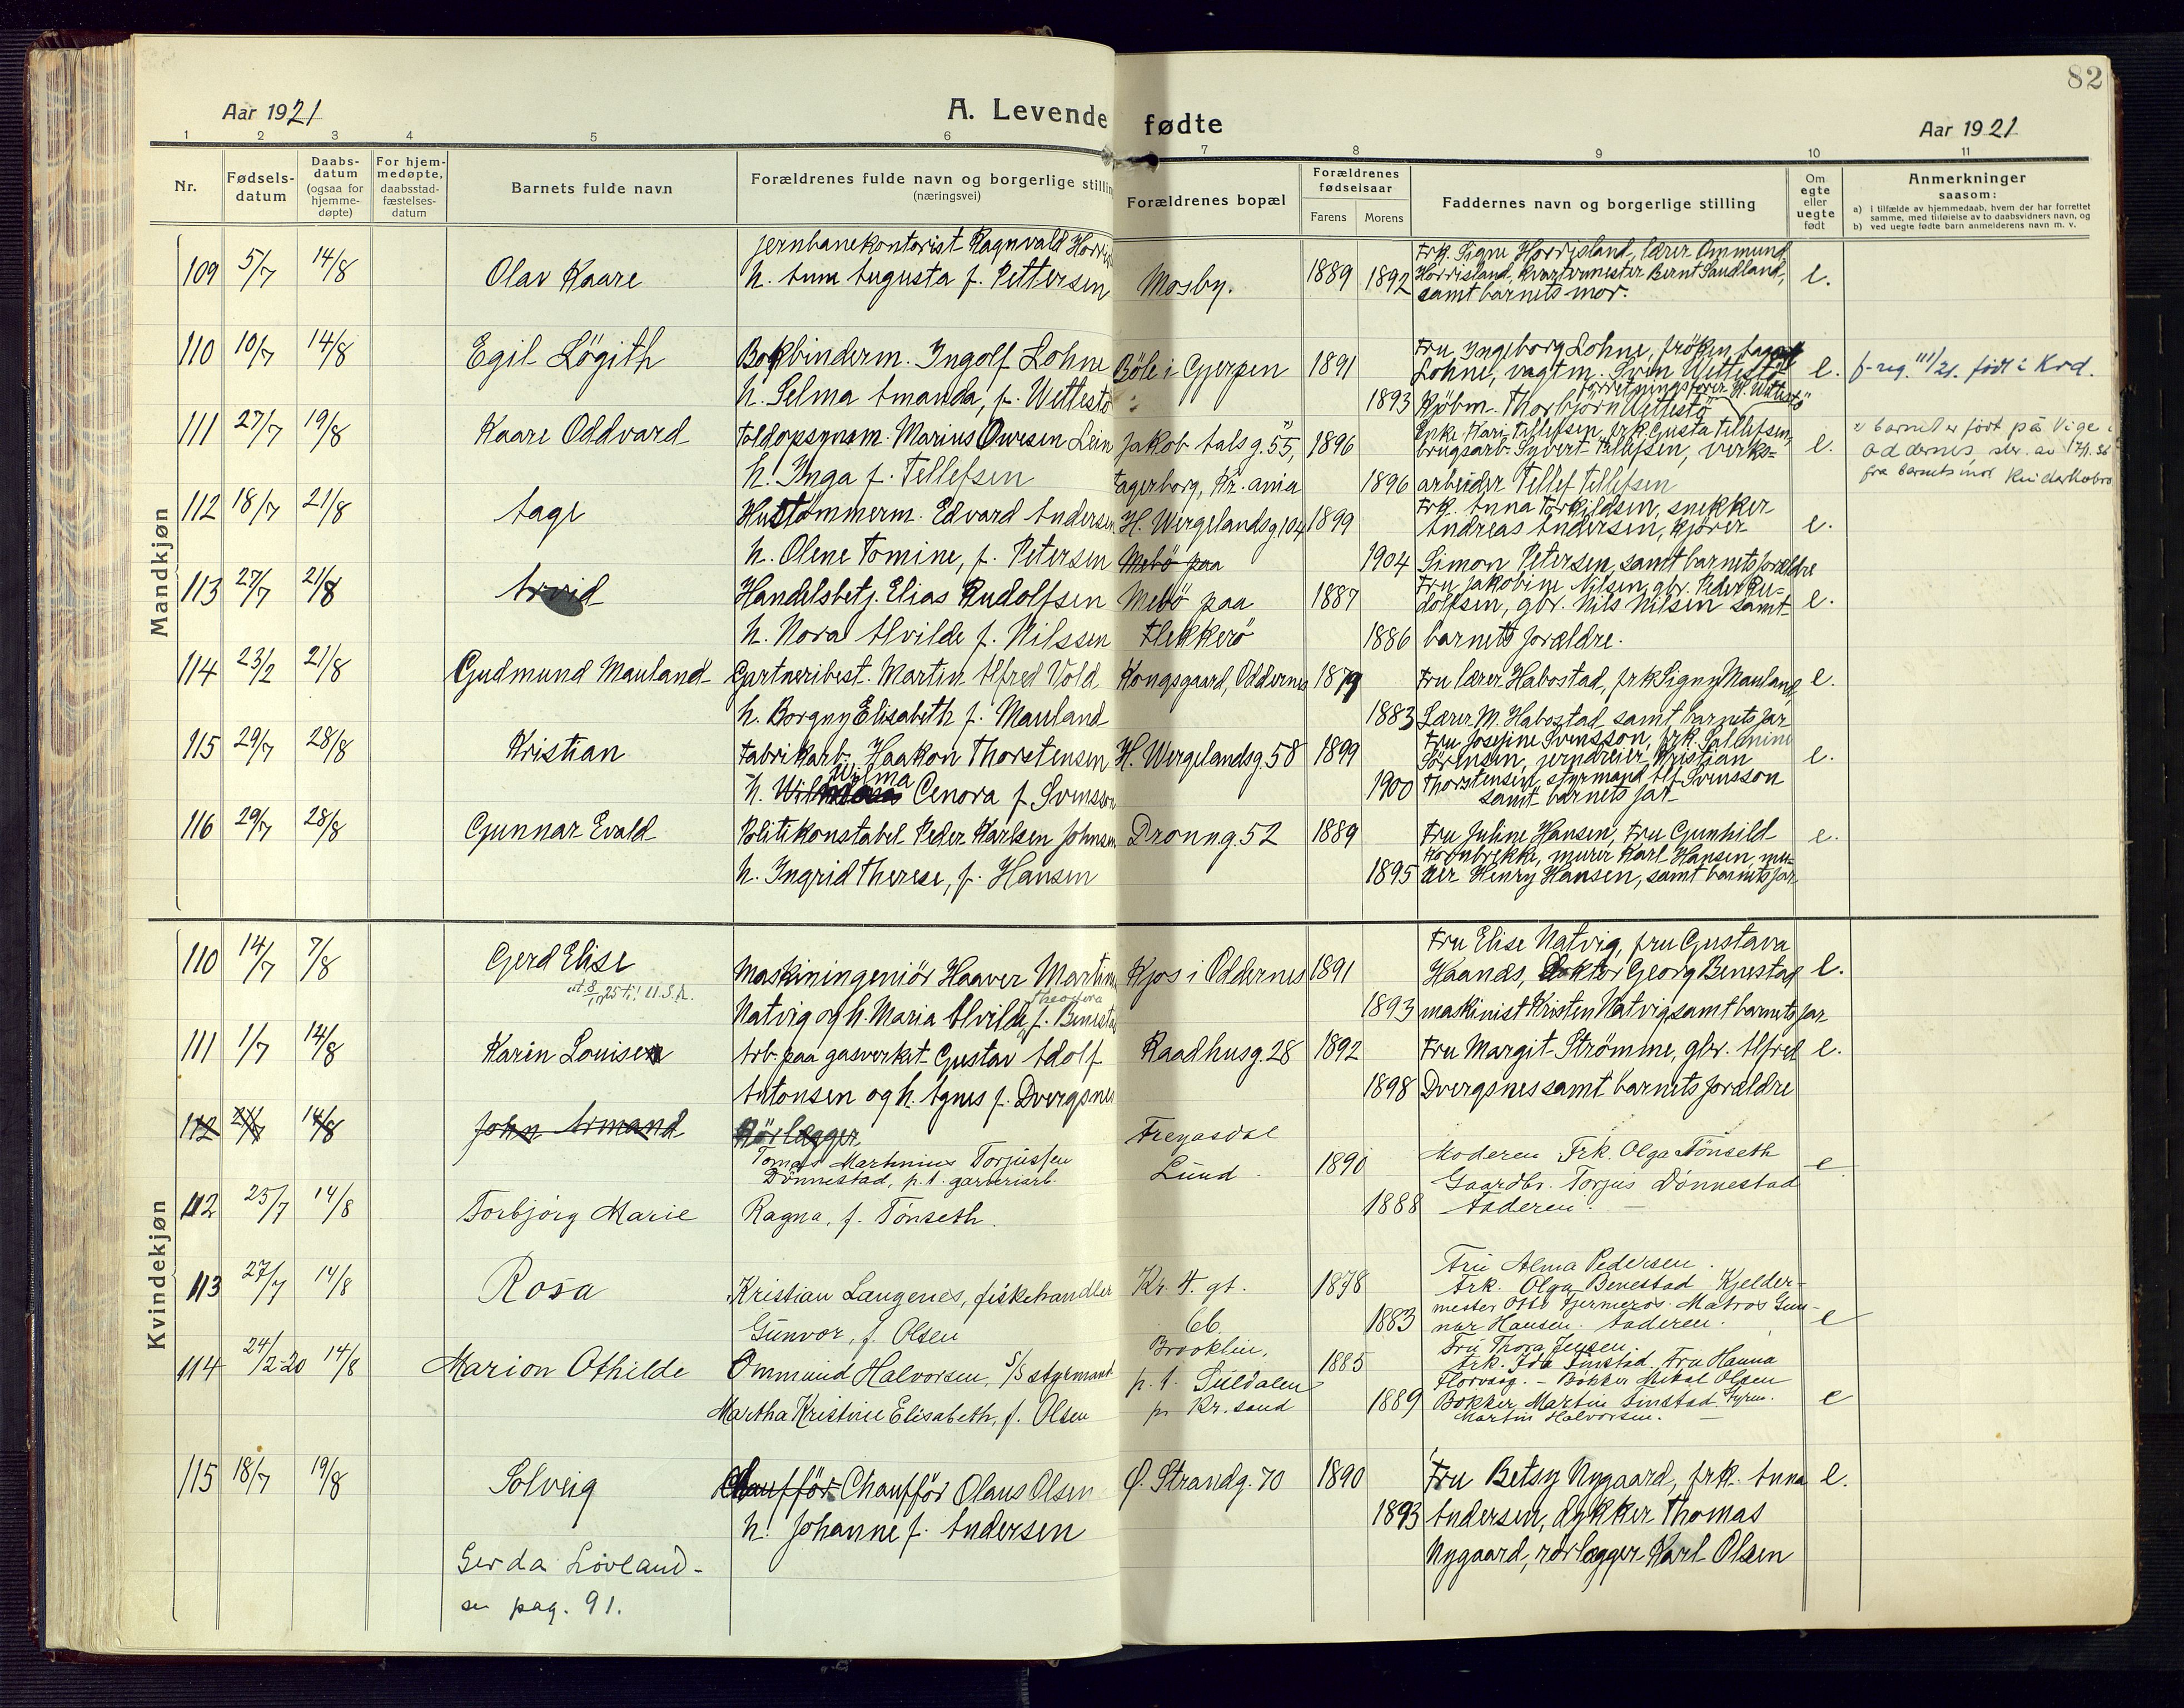 82
Aar 1921
A. Levende fødte
Aar 1921
1 2 3 4 5 6 7 8 9 10 11
Nr.
Fødsels-
datum
Daabs-
datum
(ogsaa for
hjemme-
døpte)
For hjem-
medøpte,
daabsstad-
fæstelses-
datum
Barnets fulde navn
Forældrenes fulde navn og borgerlige stillin
(næringsvei)
Forældrenes bopæl
Forældrenes
fødselsaar
Farens Morens
Faddernes navn og borgerlige stilling
Om
egte
eller
uegte
født
Anmerkninger
saasom:
a) i tilfælde av hjemmedaab, hvem der har forrettet
samme, med tilføielse av to daabsvidners navn, og
b) ved uegte fødte barn anmelderens navn m. v.
Mandkjøn
109 5/7 14/8 Olav Kaare
Jernbanekontorist Ragnvald Horris
h. Aum Augusta f. Pettersen
Mosby. 1889 1892
Frk. Signe Horrisland, lærer Ommund
Horrisland, kvartermester Bernt Saudland,
samt barnets mor.
e.
110 10/7 14/8 Egil Lögith
Bokbinderm. Ingolf Lohne
h. Selma Amanda, f. Wettestö
Böle i Gjerpen 1891 1893
Fru Ingeborg Lohne, fröken Aagot
Lohne, vagtm. Sven Wettestö
forretningsfører H. Wettestö
Kjöbm. Thorbjörn Wettestö
e.
f-reg. 111/21. født i Krd.
111 27/7 19/8 Kaare Oddvard
Toldopsynsm. Marius Owesen Lein
h. Inga f. Tellefsen
Jakob Aals g. 55,
Fagerborg, Kr.ania
1896 1896
Enke Kari Tellefsen, frk. Gusta Tellefsen,
brugsarb. Syvert Tellefsen, verks-
arbeider Tellef Tellefsen
e.
barnet er født på Vige i
Oddernes, skr. av 17/1. 56
fra barnets mor
112 18/7 21/8 Aage
Hustömmerm. Edvard Andersen
h. Olene Tomine, f. Petersen
H. Wergelandsg. 104
Mebö paa
1899 1904
Frk. Anna Torkildsen, snekker
Andreas Andersen, kjører
Simon Petersen, samt barnets forældre
e.
113 27/7 21/8 Arvid
Handelsbetj. Elias Rudolfsen
h. Nora Alvilde f. Nilssen
Mebö paa
Flekkerö
1887 1886
Fru Jakobine Nilsen, gbr. Peder Ru-
dolfsen, gbr. Nils Nilsen samt
barnets forældre.
e.
114 23/2 21/8 Gudmund Mauland
Gartneribest. Martin Alfred Vold
h. Borgny Elisabeth f. Mauland
Kongsgaard, Oddernes 1879 1883
Fru lærer Habostad, frk Signy Mauland,
Lærer M. Habostad samt barnets far
e.
115 29/7 28/8 Kristian
Fabrikarb. Haakon Thorstensen
Wilma
h. Cenora f. Svensson
H. Wergelandsg. 58 1899 1900
Fru Josefine Svensson, frk. Salomine
Sörensen, jerndreier Kristian
Thorstensen, styrmand Alf Svensson
samt barnets far
e.
116 29/7 28/8 Gunnar Evald
Politikonstabel Peder Karlsen Johnsen
h. Ingrid Therese, f. Hansen
Dronng. 52 1889 1895
Fru Juline Hansen, Fru Gunhild
Kornbrekke, murer Karl Hansen, mu-
rer Henry Hansen, samt barnets far
e.
Kvindekjøn
110 14/7 7/8 Gerd Elise
ut. 8/10 25 til U.S.A.
Maskiningeniör Haaver Martin
Theodora
Natvig og h. Maria Alvilde f. Benestad
Kjos i Oddernes 1891 1893
Fru Elise Natvig, fru Gustava
Haanes, doktor Georg Benestad
maskinist Kristen Natvig, samt barnets far
e.
111 1/7 14/8 Karin Louise
Arb. paa gasverket Gustav Adolf
Antonsen og h. Agnes f. Dvergsnes
Raadhusg. 28 1892 1898
Fru Margit Strömme, gbr. Alfred
Dvergsnes samt barnets forældre
e.
112 27/7 14/8 John Armand
Rörlægger
112 25/7 14/8 Torbjørg Marie
Tomas Martinius Torjussen
Dönnestad, p.t. garveriarb.
Ragna, f. Tönseth.
Freyasdal
Lund.
1890 1888
Moderen Frk. Olga Tönseth
Gaardbr. Torjus Dönnestad
Faderen.
e
113 27/7 14/8 Rosa
Kristian Langenes, fiskehandler
Gunvor, f. Olsen
Kr. 4. gt.
66.
1878 1883
Fru Alma Pedersen.
Frk. Olga Benestad Kjelder-
mester Otto Fjermeros. Matros Gun-
nar Hansen. Faderen.
e
114 24/2-20 14/8 Marion Othilde
Ommund Halvorsen, S/S styrmand
Martha Kristine Elisabeth, f. Olsen
Brooklin,
p. t. Suldalen
pr Kr. sand
1885 1889
Fru Thora Jensen.
Frk. Ida Finstad. Fru Hanna
Florvaag. - Bøkker Mikal Olsen
Bøkker Martin Finstad. Styrm.
Martin Halvorsen.
e
115 18/7 19/8 Solveig
Chaufför Chauffør Olaus Olsen
h. Johanne f. Andersen
Ø. Strandg. 70 1890 1893
Fru Betsy Nygaard, frk. Anna
Andersen, dykker Thomas
Nygaard, rørlægger Karl Olsen
e.
Gerda Lövland -
se pag. 91.